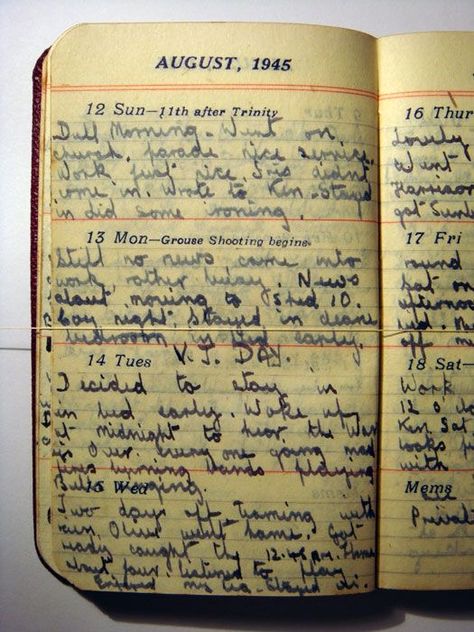 AUGUST, 1945
12 Sun—11th after Trinity
Dull Morning. Went on
church parade nice service.
Work just nice. Iris didnt
come in. Wrote to Ken. Stayed
in did some ironing.
13 Mon—Grouse Shooting begins.
Still no news came into
work, rather busy. News
about moving to Shed 10.
night. Stayed in
bedroom in bed early.
14 Tues V.J. DAY.
I decided to stay in
in bed early. Woke up
at midnight to hear the War
is Over. every one going mad
fires burning Bands playing
singing.
15 Wed
Two days off. Training with
Olive went home. Got
ready caught the 12.46 pm. Home
about four. listened to play
Enjoyed my tea. Stayed in.
16 Thur
Lovely
Went
Harrison
got
17 Fri
round
Sat on
afternoon
bed.
off
18 Sat—
Work
12 O
Ken. Sat
looks
with
Mems
Private